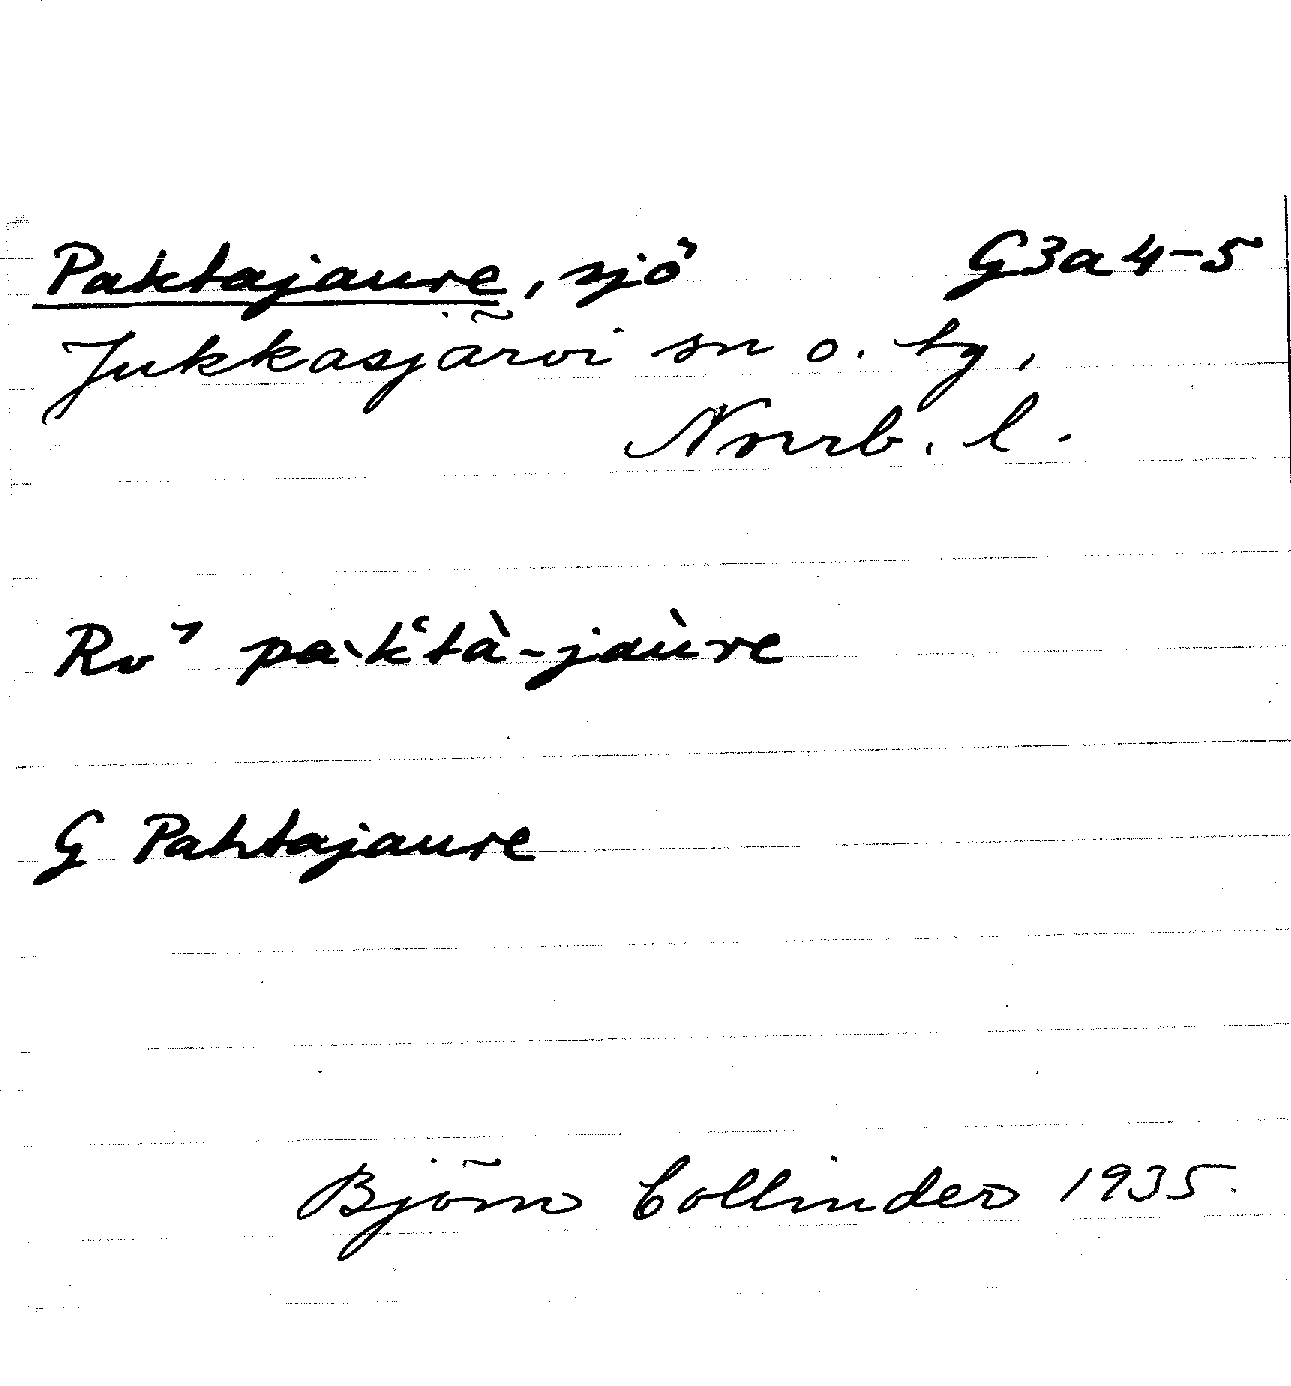 Paktajaure, sjö G3a4-5
Jukkasjärvi sn o. tg,
Norrb. l.
Rv⁷ pa·k‘tà-jaùre
G Pahtajaure
Björn Collinder 1935.